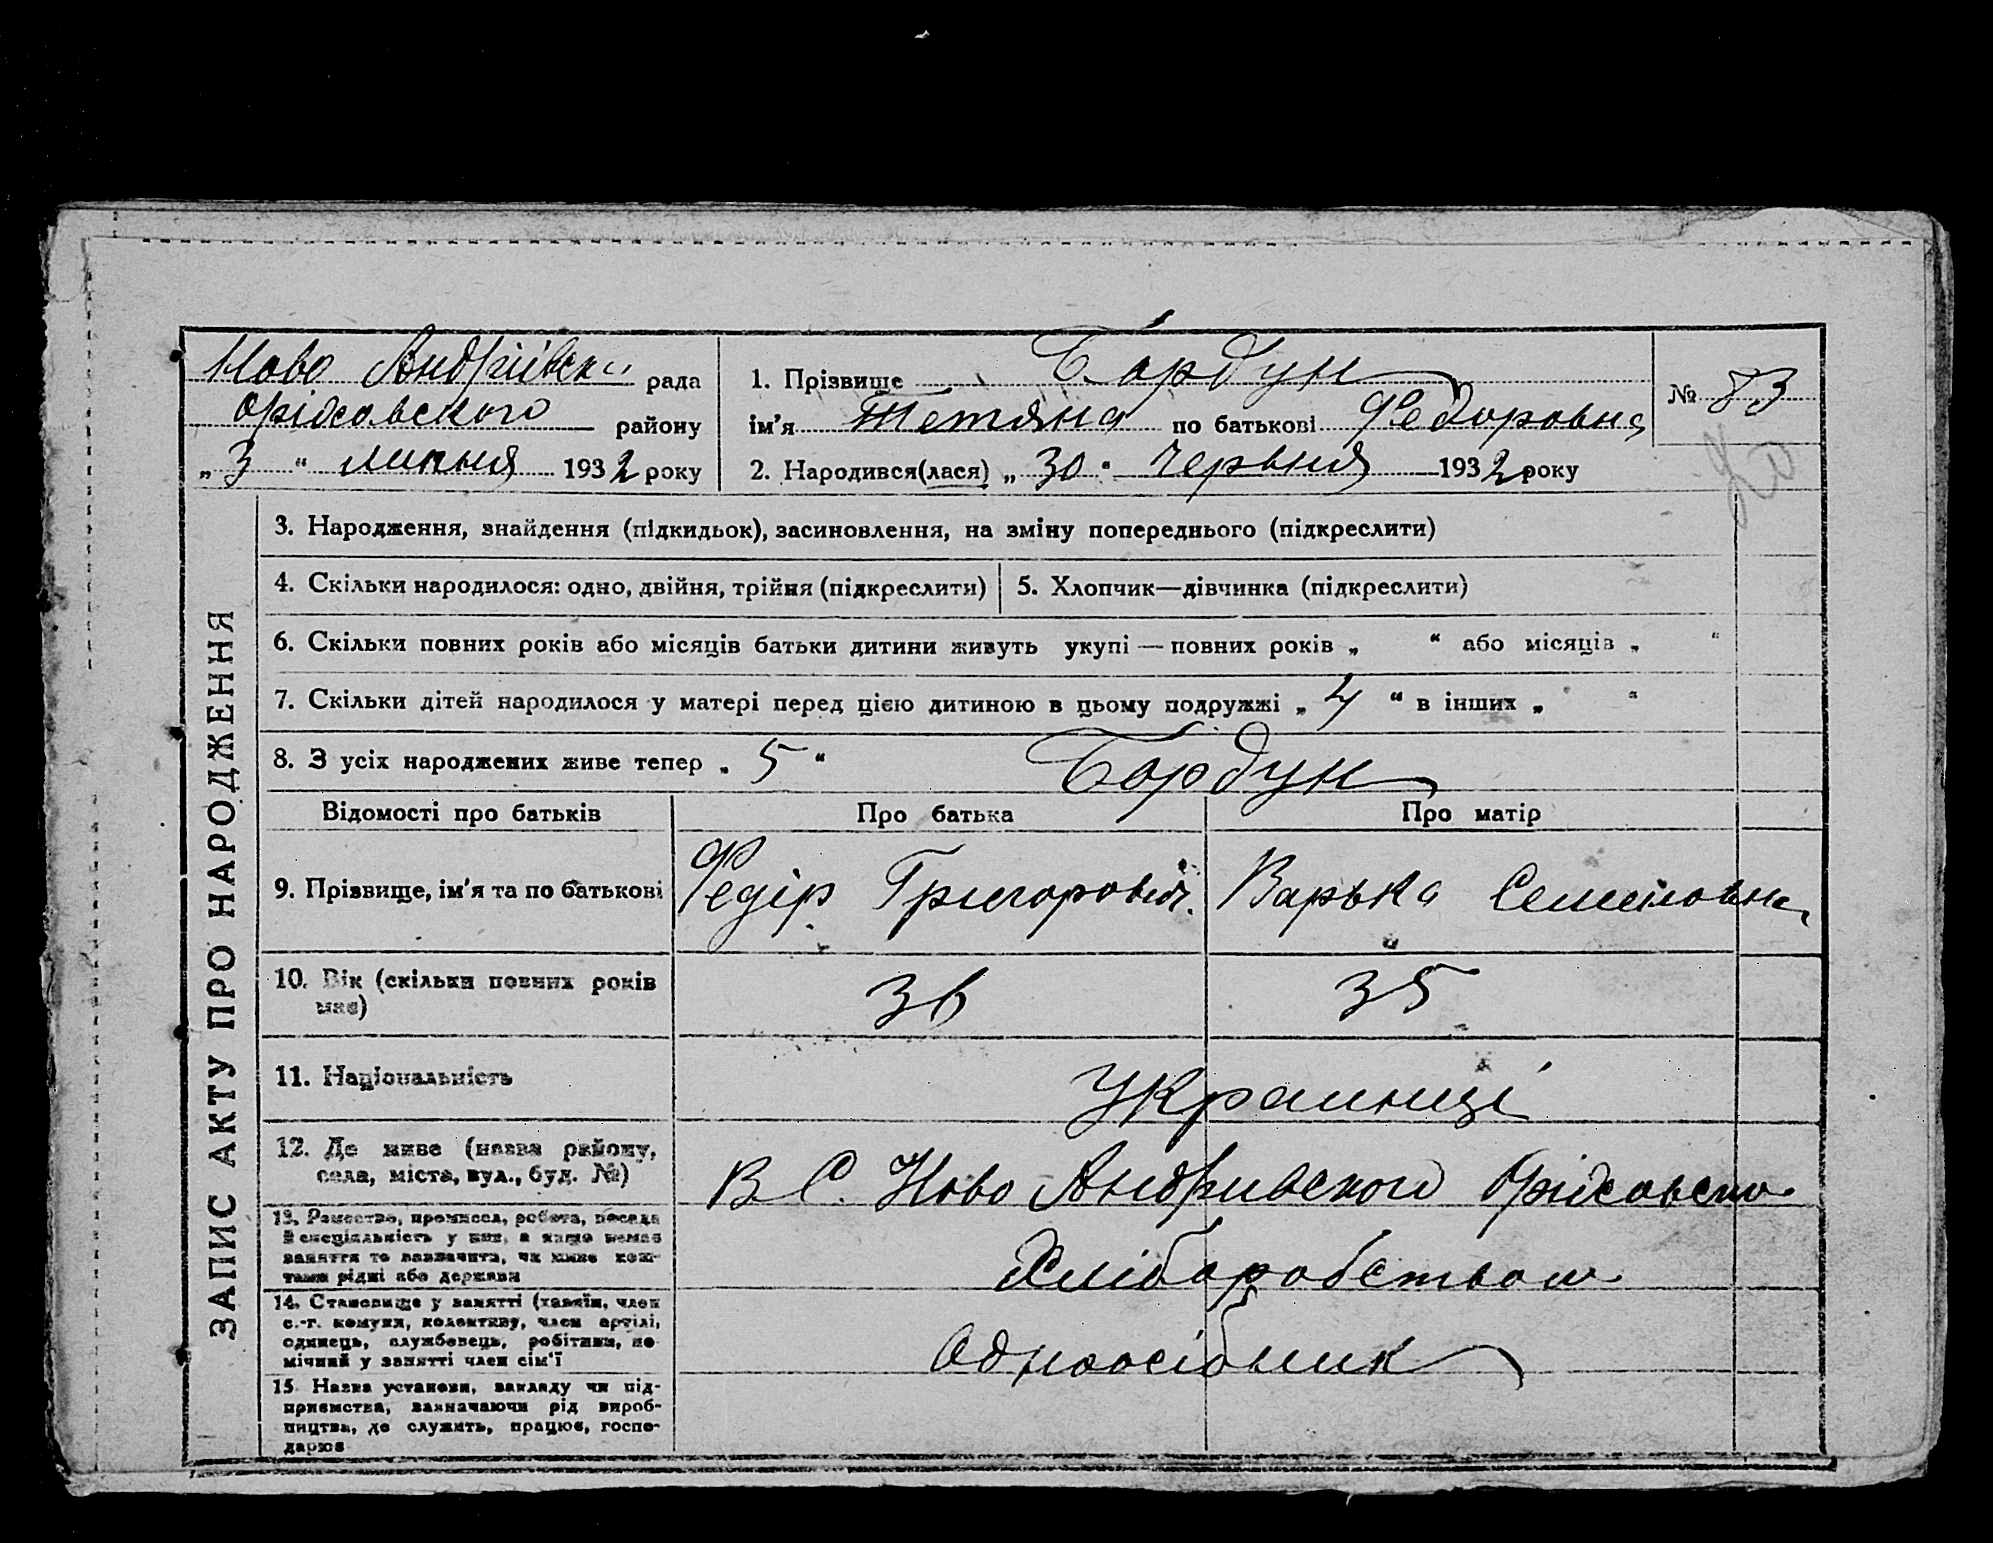 Ново Андріівськ рада
Оріховського району
„ 3 “ липня 1932 року
1. Прізвище Бордун
ім'я Тетяна по батькові Федоровна
№ 83
2. Народився(лася) „ 30 “ Червня 1932 року
ЗАПИС АКТУ ПРО НАРОДЖЕННЯ
3. Народження, знайдення (підкидьок), засиновлення, на зміну попереднього (підкреслити)
4. Скільки народилося: одно, двійня, трійня (підкреслити) 5. Хлопчик—дівчинка (підкреслити)
6. Скільки повних років або місяців батьки дитини живуть укупі — повних років „ “ або місяців „ “
7. Скільки дітей народилося у матері перед цією дитиною в цьому подружжі „ 4 “ в інших „ “
8. З усіх народжених живе тепер „ 5 “ Бордун
Відомості про батьків Про батька Про матір
9. Прізвище, ім'я та по батькові Федір Григорович. Варька Семеновна
10. Вік (скільки повних років має) 36 35
11. Національність Украинці
12. Де живе (назва району, села, міста, вул., буд. №) В С. Ново Андривского Оріховско
13. Ремество, промисел, робота, посада
й спеціяльність у них, а якщо немає
заняття то зазначити, чи живе кош-
тами рідні або держави
Хліборобством
14. Становище у занятті (хазяїн, член
с.-г. комуни, колективу, член артілі,
одинець, службовець, робітник, по-
мічний у занятті член сім'ї
Одноосібник
15. Назва установи, закладу чи під-
приємства, зазначаючи рід вироб-
ництва, де служить, працює, госпо-
дарює